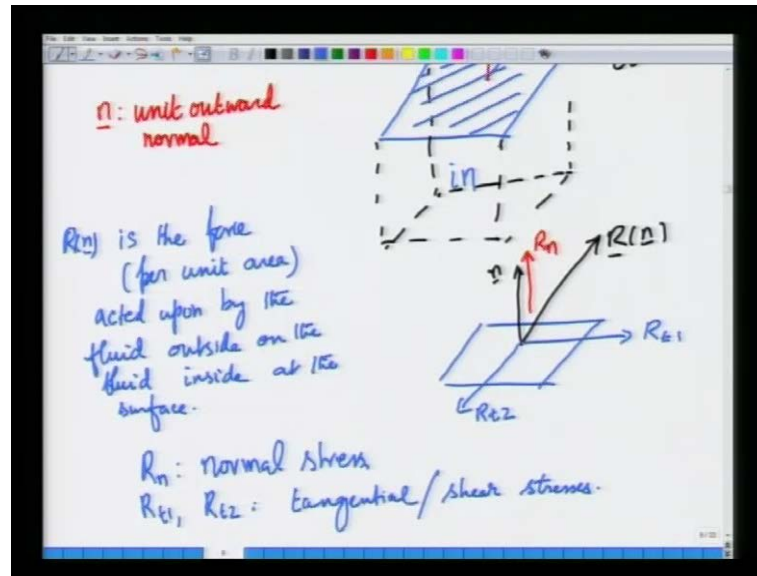 File Edit View Insert Actions Tools Help
n: unit outward
normal
in
R(n) is the force
(per unit area)
acted upon by the
fluid outside on the
fluid inside at the
surface.
n
Rn
R(n)
Rt1
Rt2
Rn: normal stress
Rt1, Rt2: tangential/shear stresses.